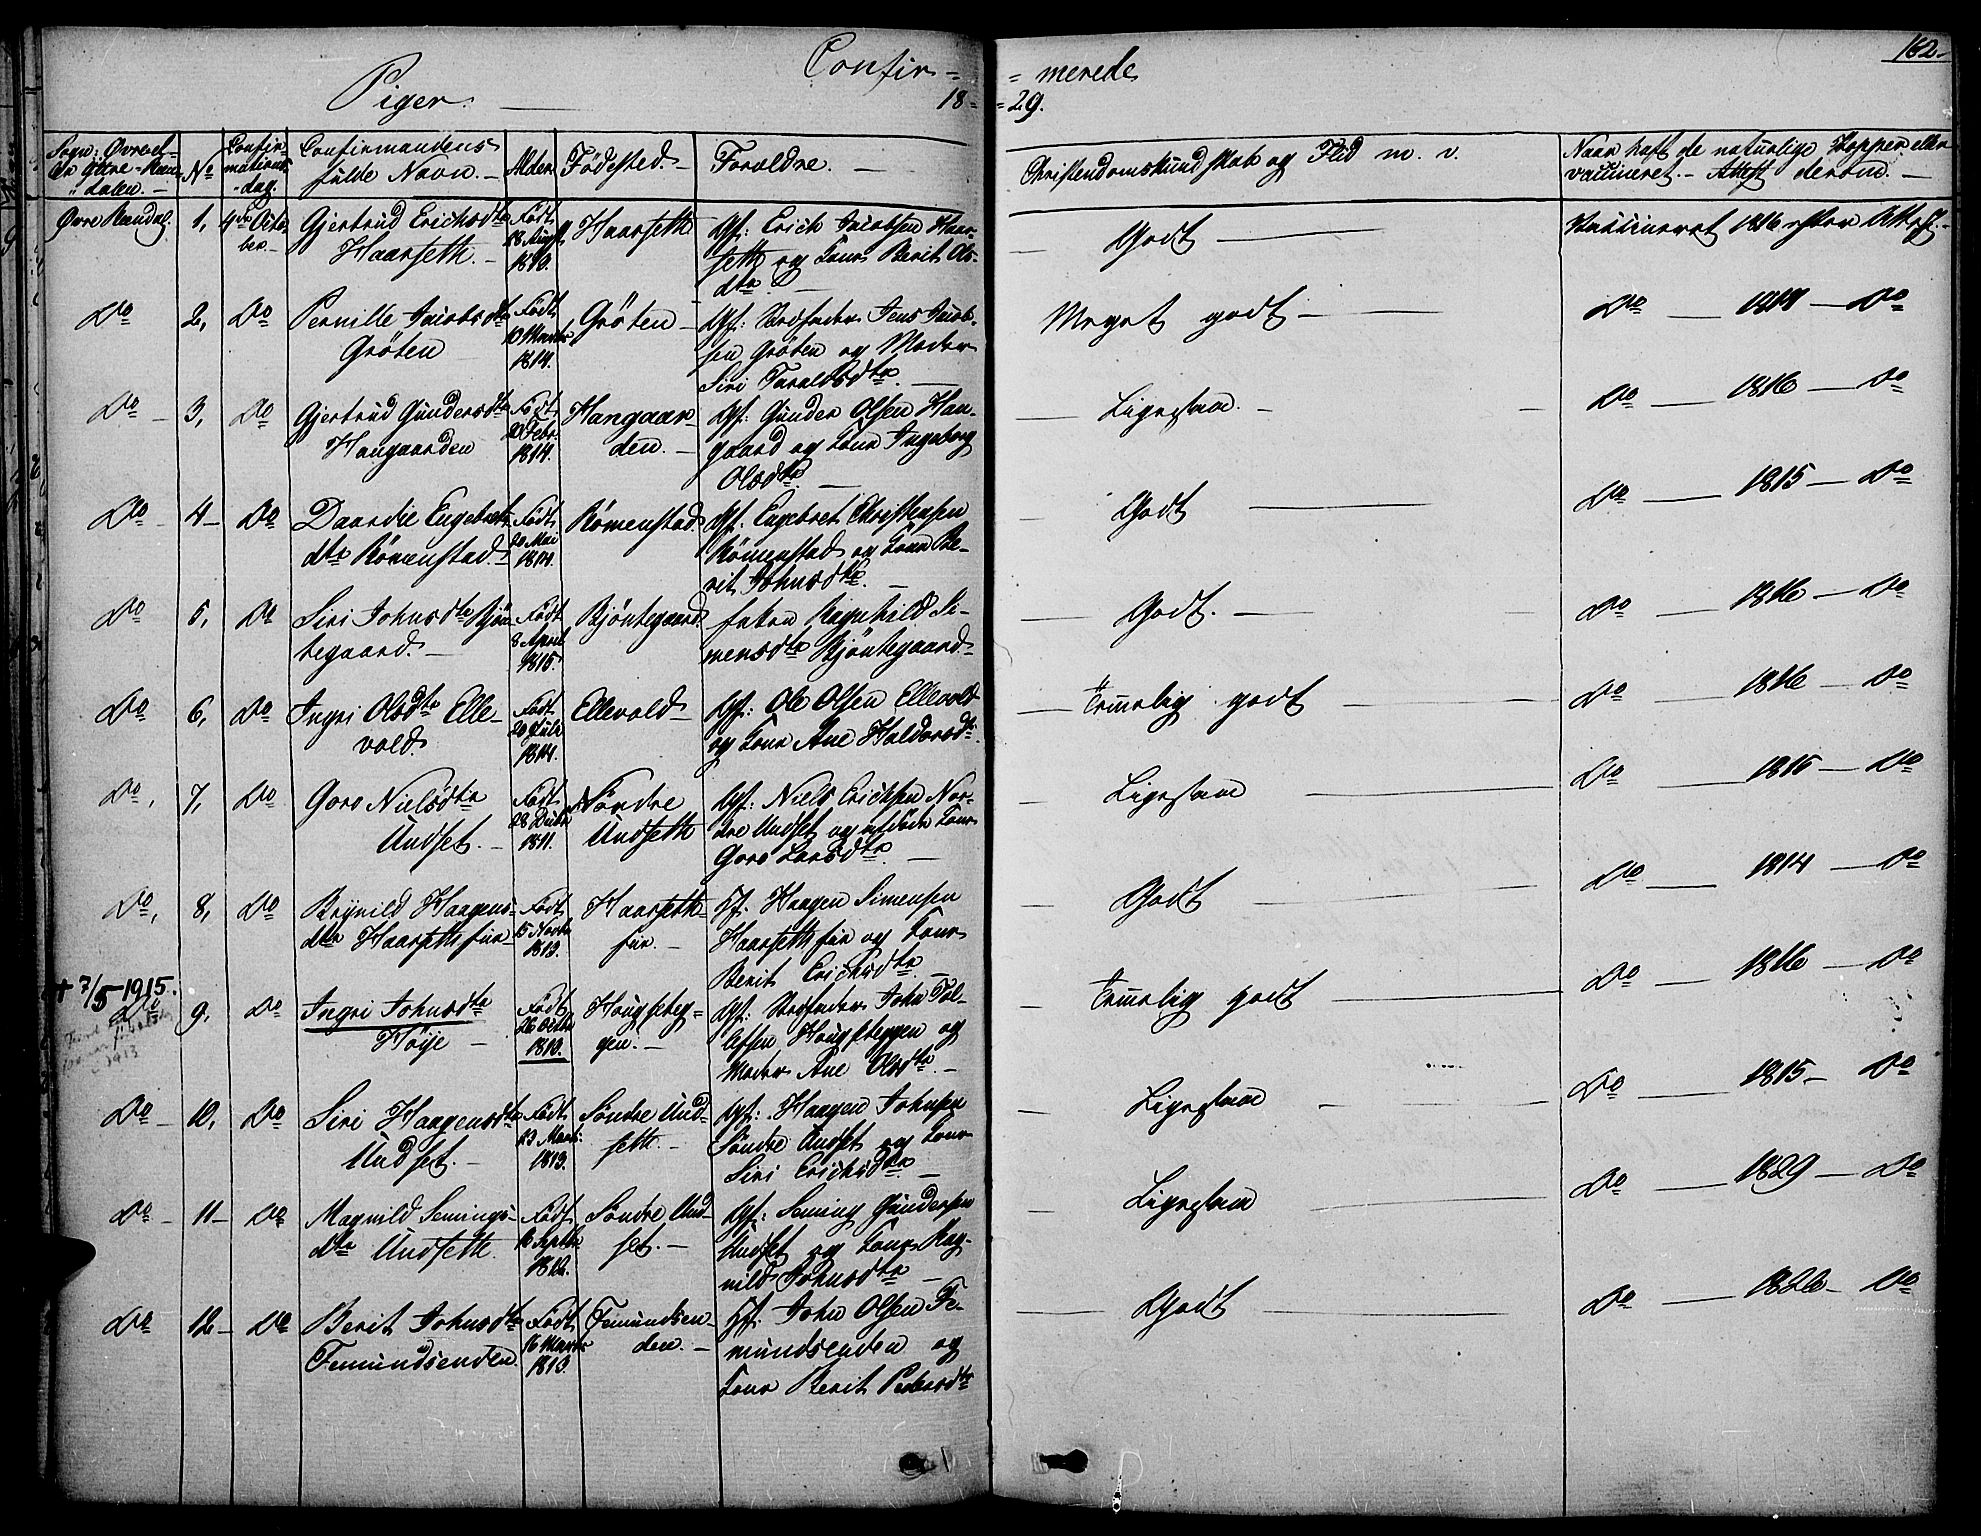 162-
Confir-
= merede
Piger.
18-
-29.
Sogn: Øvre el-
ler Yttre-Ren-
dalen.-
No
Confir-
mations-
dag.
Confirmandens
fulde Navn.-
Alder
Födested.-
Foræeldre.-
Christendomskundskab og Flid m. v.
Naar haft de naturlige Kopper eller
vaccineret.- Attest derom.-
Øvre Rendal.
1,
4de Octo-
ber.-
Gjertrud Erichsdtr
Haarseth.-
Född
1813.
Haarseth
Gf: Erich Jacobsen Haar-
seth og Kone Berit Ols-
dtr.
Godt
Vaccineret 1816 efter Attest.-
Do
2,
Do
Pernille Jacobsdtr
Gröten
Född
13 Marts
1814.
Gröten
Gf: Stedfader Jens Jacob-
sen Gröten og Moder
Siri Taraldsdtr.
Meget godt
Do - 1814 - Do
Do
3,
Do
Gjertrud Gundersdtr
Hangaarden
Född
20 Febr.
1814.
Hangaar-
den.-
Gf: Gunder Olsen Han-
gaard og Kone Ingeborg
Olsdtr.
Ligesaa.
Do - 1816 - Do
Do
4-
Do
Daardie Engebrets-
dtr Römenstad.
Född
20 Mai
1814.
Römenstad
Gf. Engebret Christensen
Römenstad og Kone Be-
rit Johnsdtr.
Godt
Do - 1815 - Do
Do
5,
Do
Siri Johnsdtr Bjön-
tegaard.-
Född
8 April
1815.
Bjöntegaard.
Enken Ragnhild Si-
mensdtr Bjöntegaard.
Godt.
Do - 1816 - Do
Do
6,
Do
Ingri Olsdtr Elle-
vold.
Född
20 Juli
1814.
Ellevold
Gf: Ole Olsen Ellevold
og Kone Ane Haldorsdtr.
Temmelig godt
Do - 1816 - Do
Do,
7,
Do
Goro Nielsdtr
Undset.
Född
28 Decbr
1811.
Nordre
Undseth
Gf: Niels Erichsen Nor-
dre Undset og afdöde Kone
Goro Larsdtr.
Ligesaa
Do - 1815 - Do
Do,
8,
Do
Brynild Haagens-
dtr Haarsethsin
Född
15 Novbr
1813.
Haarseth-
sin.-
Hf. Haagen Simensen
Haarsethsin og Kone
Berit Erichsdtr.
Godt
Do - 1814 - Do
+ 7/5-1915.
Do
9,
Do
Ingri Johnsdtr
Höije
Född
26 Octbr
1813.
Hougsteg-
gen.-
Gf. Stedfader John Tol-
lefsen Hougsteggen og
Moder Ane Olsdtr.
Temmelig godt
Do - 1816 - Do
Do
10,
Do
Siri Haagensdtr
Undset.-
Född
23 Marts
1813.
Söndre Und-
seth.-
Gf: Haagen Johnsen
Söndre Undset og Kone
Siri Erichsdtr
Ligesaa
Do - 1815 - Do
Do
11-
Do
Magnild Semings-
dtr Undseth.
Född
16 Septbr
1812.
Söndre Und-
set.-
Gf: Seming Gundersen
Undset og Kone Rag-
nild Johnsdtr
Ligesaa
Do - 1829 - Do
Do
12-
Do
Berit Johnsdtr
Femundsenden
Född
16 Marts
1813.
Femundsen-
den.-
Hf. John Olsen Fe-
mundsenden og
Kone Berit Pedersdtr
Godt
Do - 1826 - Do